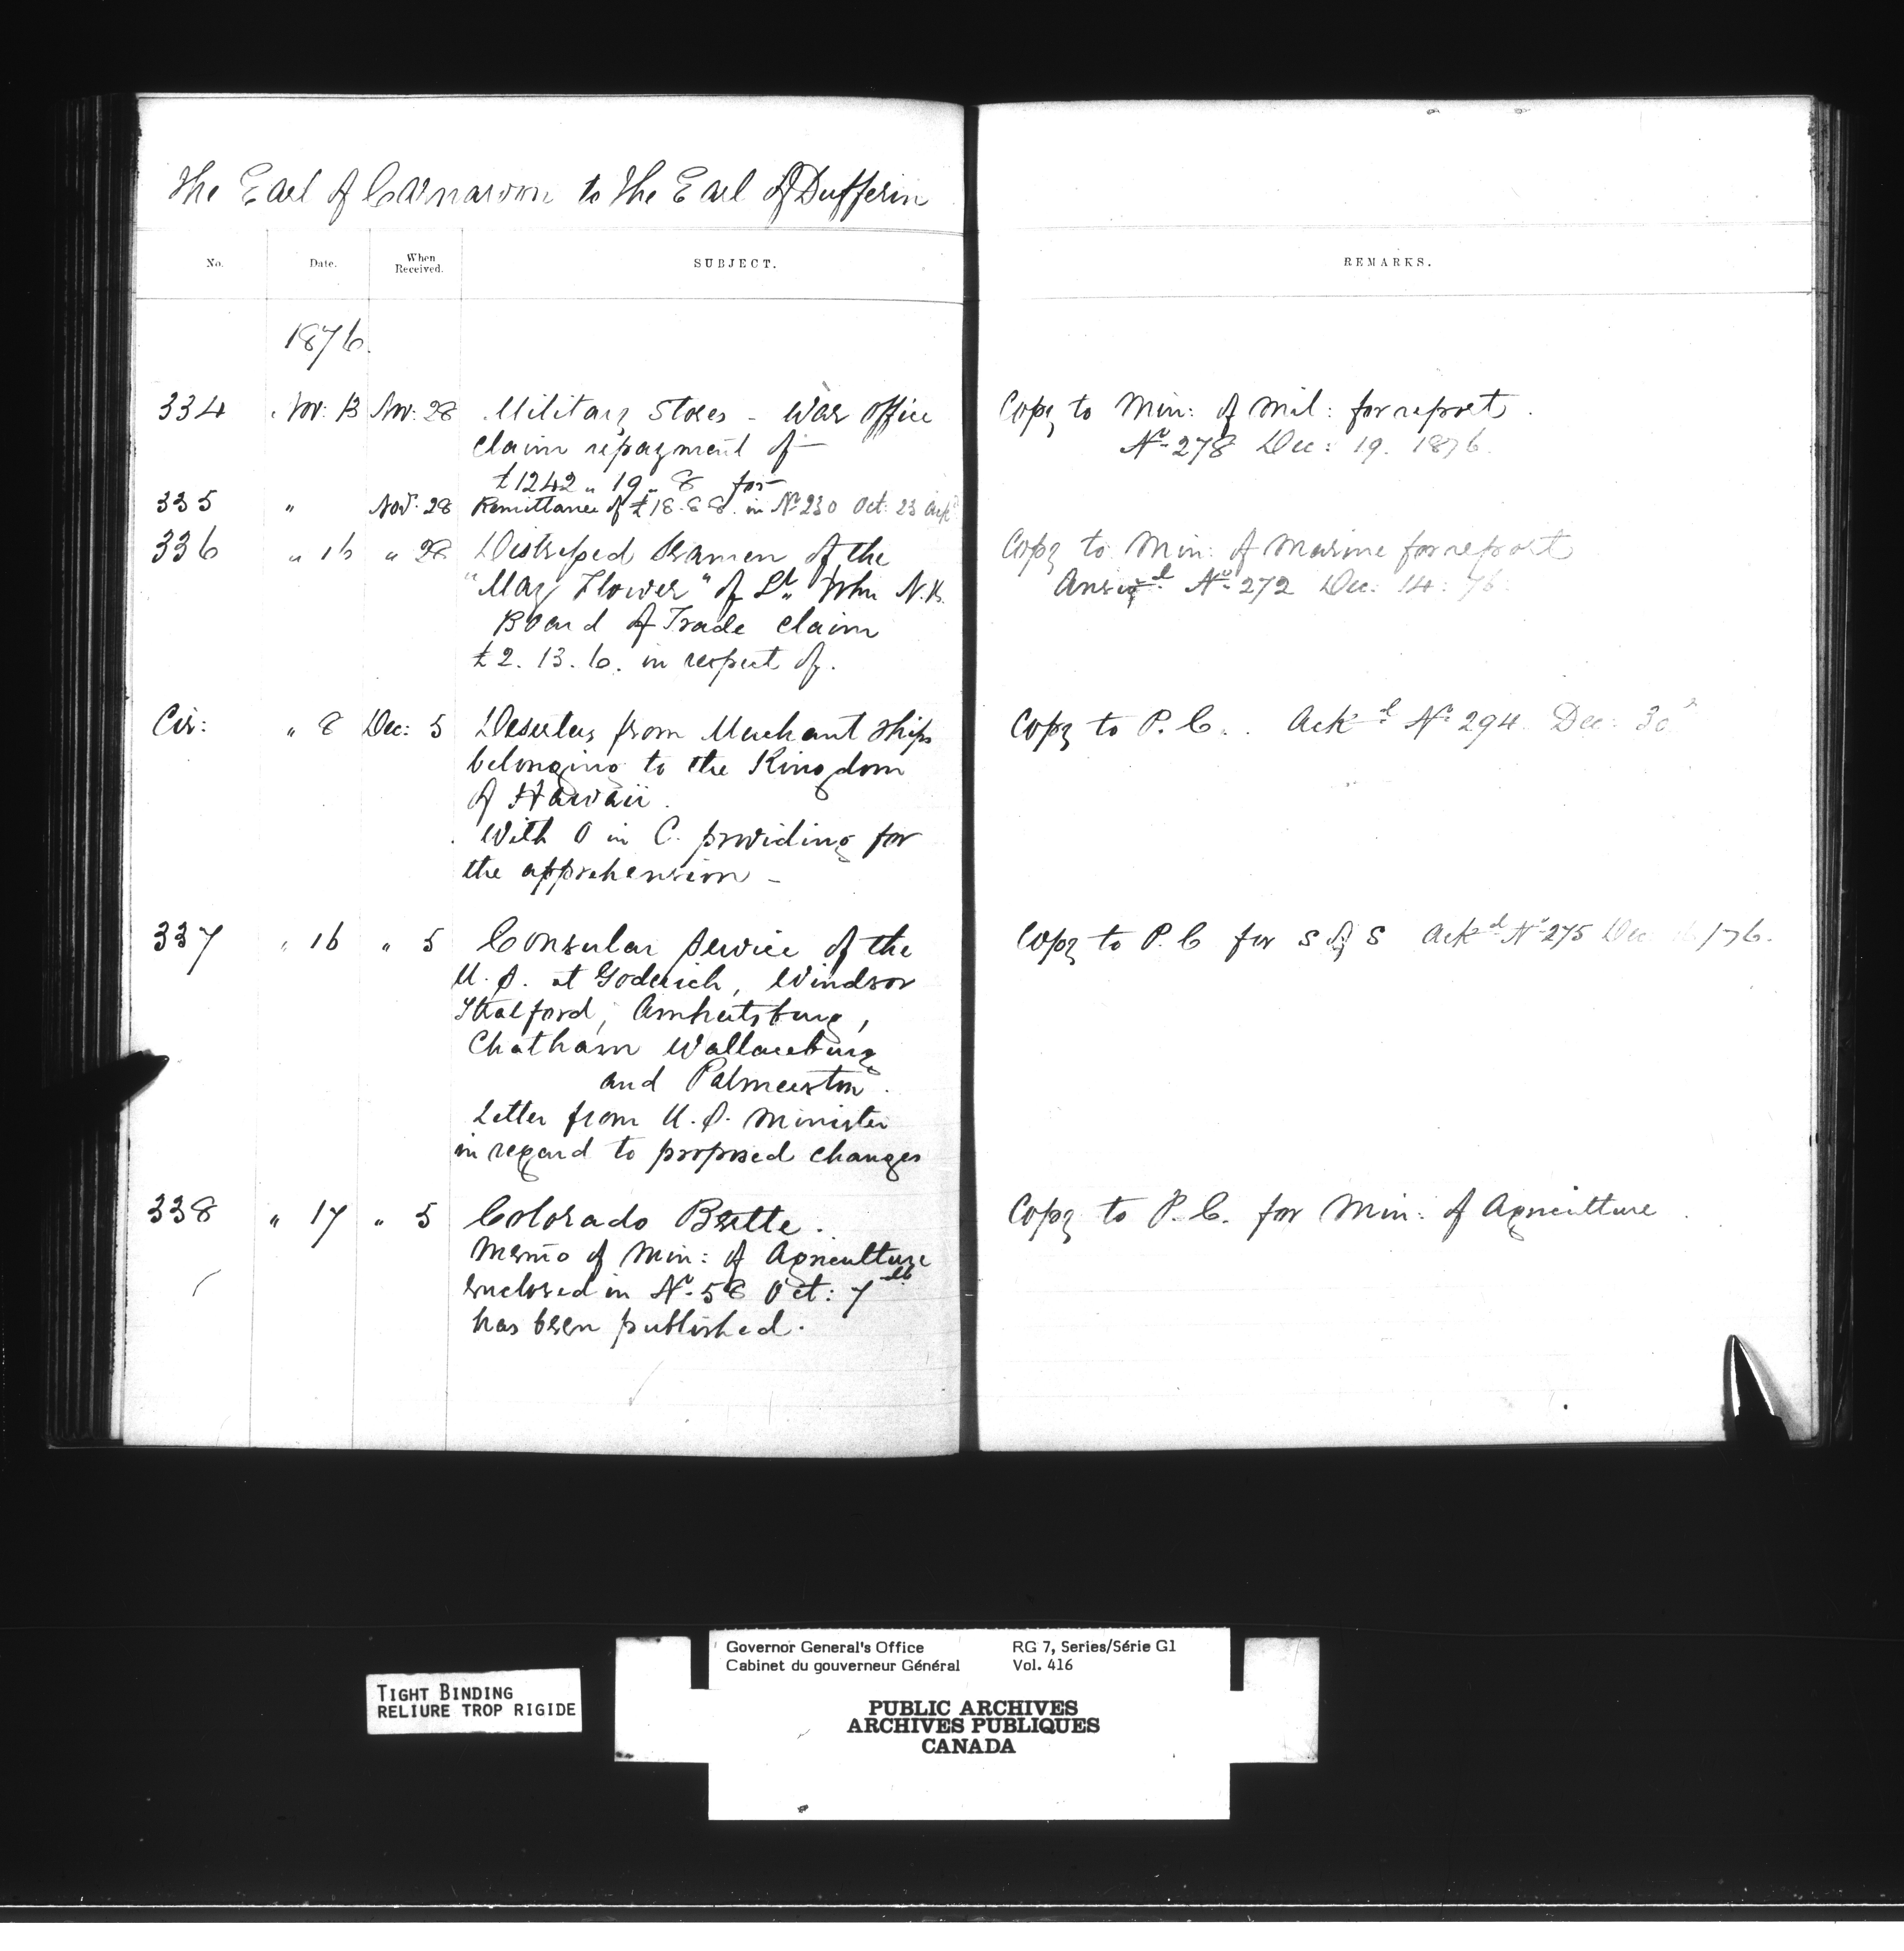 The Earl of Carnarvon to the Earl of Dufferin
No. Date. When Received. SUBJECT. REMARKS.
1876.
334 Nov: 13 Nov: 28 Military Stores - War Office Copy to Min: of Mil: for report.
claim repayment of- No 278 Dec: 19. 1876.
£1242 " 19 " 8 for-
335 " Nov: 28 Remittance of £18.8.8. in No 230 Oct: 23 ackd
336 " 16 " 28 Distressed Seamen of the Copy to Min: of Marine for report
"May Flower" of St John N.B. Answd No 272 Dec: 14: 76.
Board of Trade claim
£2. 13. 6. in respect of.
Cir: " 8 Dec: 5 Deserters from Merchant Ships Copy to P. C. Ackd No 294 Dec: 30
belonging to the Kingdom
of Hawaii.
With O in C. providing for
the apprehension -
337 " 16 " 5 Consular Service of the Copy to P. C for S of S Ackd No 275 Dec /76.
U. S. at Goderich, Windsor
Stratford, Amherstburg,
Chatham Wallaceburg
and Palmerston.
Letter from U. S. Minister
in regard to proposed changes
338 " 17 " 5 Colorado Beetle. Copy to P. C. for Min: of Agriculture.
Memo of Min: of Agriculture
enclosed in No 58 Oct: 7th
has been published.
TIGHT BINDING
RELIURE TROP RIGIDE
Governor General's Office RG 7, Series/Série G1
Cabinet du gouverneur Général Vol. 416
PUBLIC ARCHIVES
ARCHIVES PUBLIQUES
CANADA